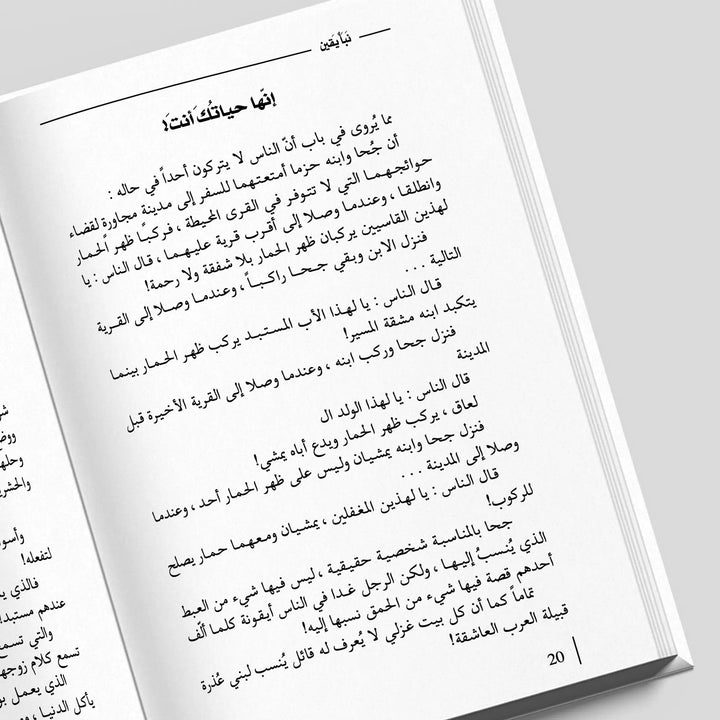 نبأ يقين
إنّها حياتُكَ أنتَ!
مما يُروى في باب أنّ الناس لا يتركون أحداً في حاله :
أن جُحا وابنه حزما أمتعتهما للسفر إلى مدينة مجاورة لقضاء
حوائجهما التي لا تتوفر في القرى المحيطة ، فركبا ظهر الحمار
وانطلقا ، وعندما وصلا إلى أقرب قرية عليهما ، قال الناس : يا
لهذين القاسيين يركبان ظهر الحمار بلا شفقة ولا رحمة!
فنزل الابن وبقي جحا راكباً ، وعندما وصلا إلى القرية
التالية ...
قال الناس : يا لهذا الأب المستبد يركب ظهر الحمار بينما
يتكبد ابنه مشقة المسير!
فنزل جحا وركب ابنه ، وعندما وصلا إلى القرية الأخيرة قبل
المدينة
قال الناس : يا لهذا الولد ال
لعاق ، يركب ظهر الحمار ويدع أباه يمشي!
فنزل جحا وابنه يمشيان وليس على ظهر الحمار أحد ، وعندما
وصلا إلى المدينة ...
قال الناس : يا لهذين المغفلين ، يمشيان ومعهما حمار يصلح
للركوب!
جحا بالمناسبة شخصية حقيقية ، ليس فيها شيء من العبط
الذي يُنسبُ إليها ، ولكن الرجل غدا في الناس أيقونة كلما ألّف
أحدهم قصة فيها شيء من الحمق نسبها إليه!
تماماً كما أن كل بيت غزلي لا يُعرف له قائل يُنسب لبني عُذرة
قبيلة العرب العاشقة!
20
وأسو
لتفعله!
فالذي ي
عندهم مستبد
والتي تسم
تسمع كلام زوجه
الذي يعمل بو
يأكل الدنيا ، وم